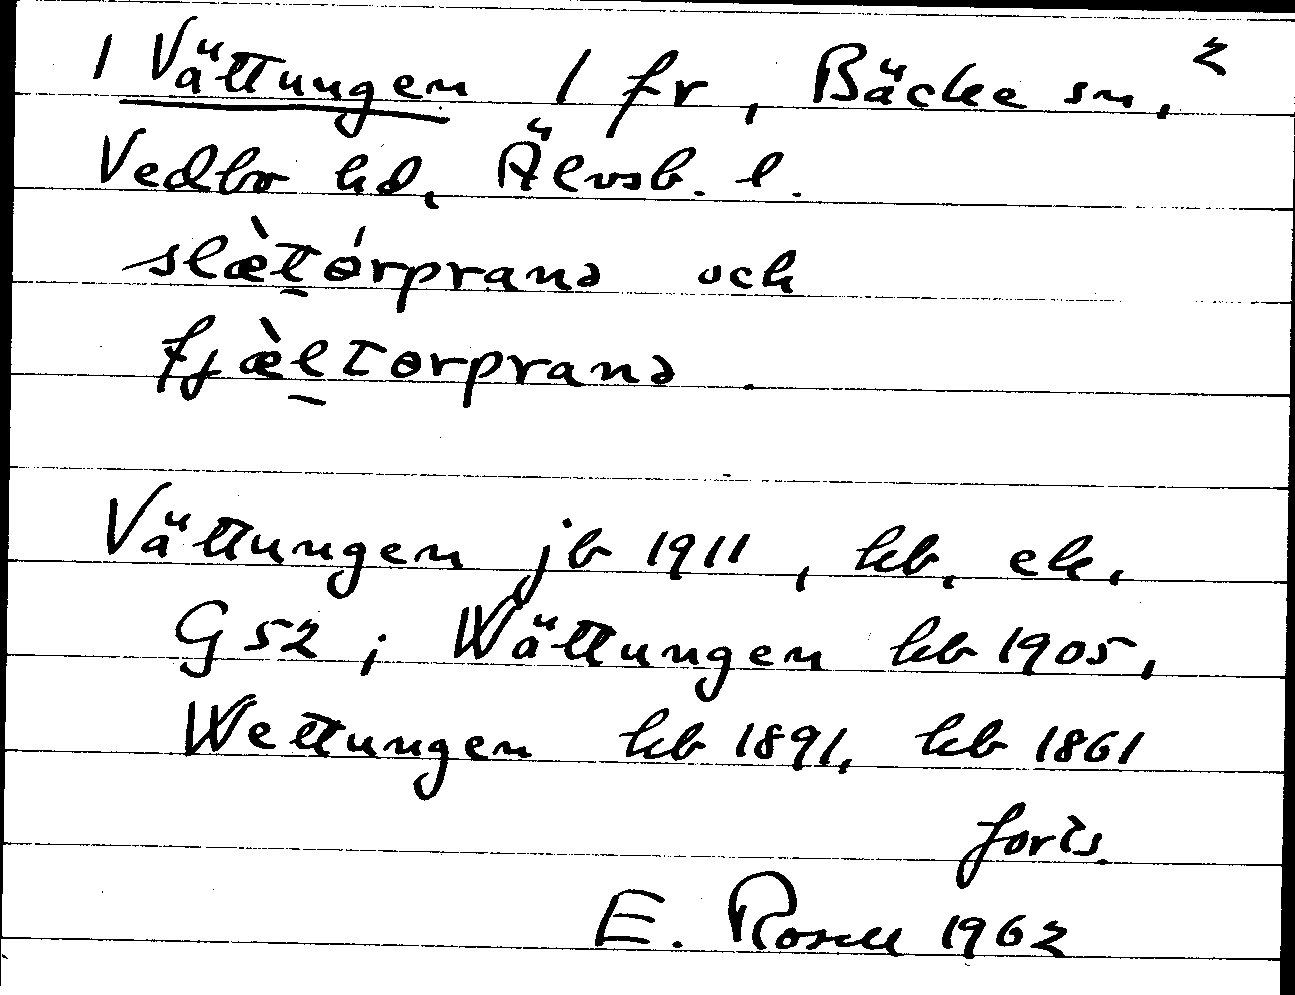 1 Vättungen 1 fr, Bäcke sn, 2
Vedbo hd, Älvsb. l.
slæ̀t̠ǿrpranə och
fjæ̀l̠tørpranə.
Vättungen jb 1911, kb, ek,
G 52; Wättungen kb 1905,
Wettungen kb 1891, kb 1861
forts.
E. Rosell 1962